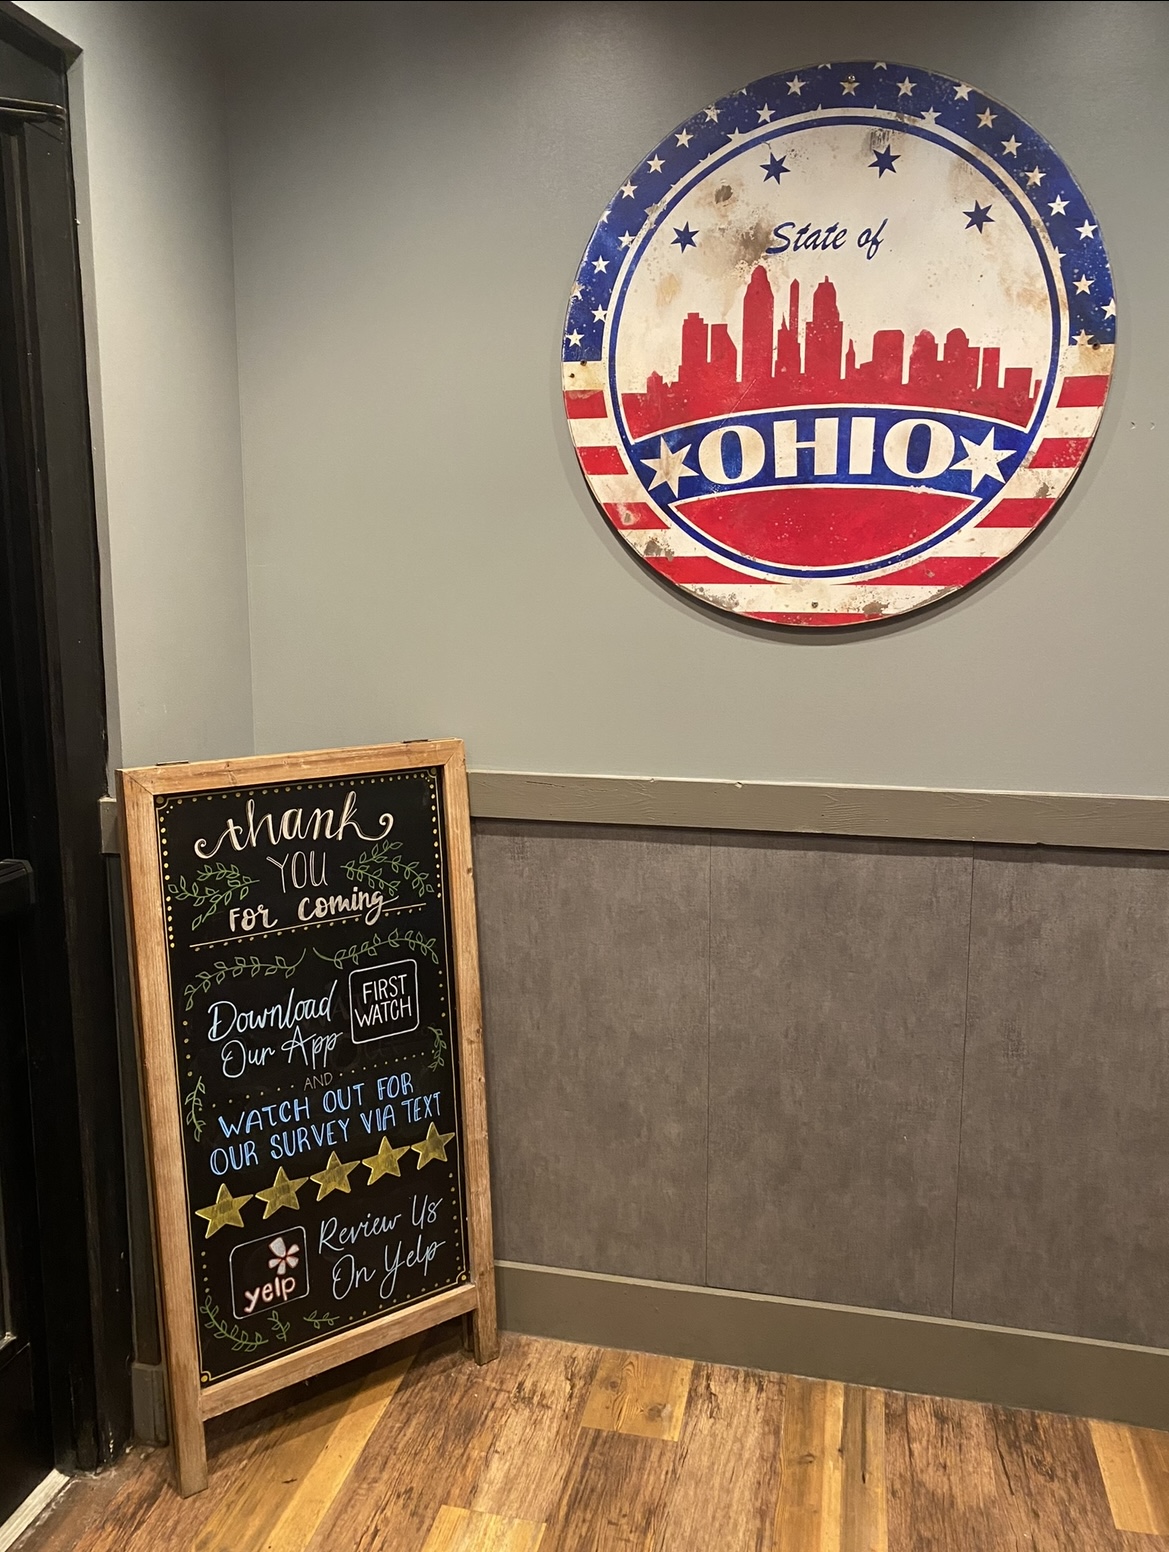 State of
OHIO
thank
YOU
For coming
Download
Our App
FIRST
WATCH
AND
WATCH OUT FOR
OUR SURVEY VIA TEXT
yelp
Review Us
On Yelp